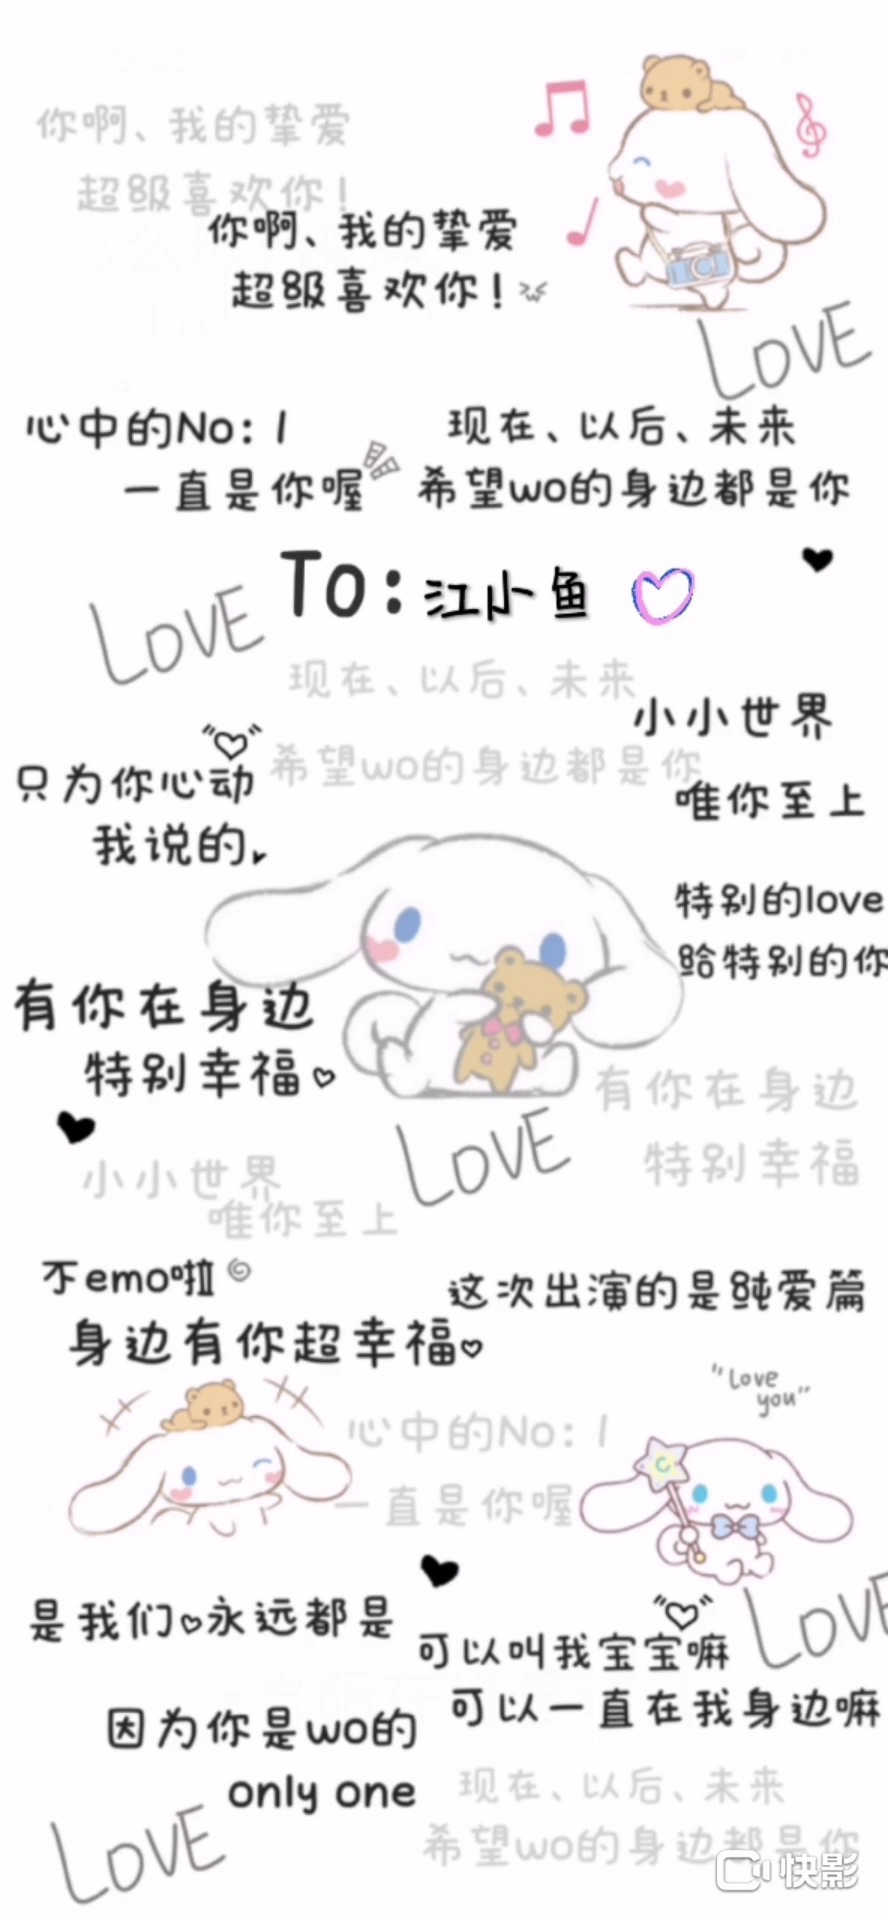 你啊、我的挚爱
超级喜欢你！
你啊、我的挚爱
超级喜欢你！
LOVE
心中的No：1
一直是你喔
现在、以后、未来
希望wo的身边都是你
To：江小鱼
LOVE
现在、以后、未来
希望wo的身边都是你
小小世界
唯你至上
只为你心动
我说的
特别的love
给特别的你
有你在身边
特别幸福
有你在身边
特别幸福
LOVE
小小世界
唯你至上
不emo啦
身边有你超幸福
这次出演的是纯爱篇
"Love
you"
心中的No：1
一直是你喔
是我们永远都是
可以叫我宝宝嘛
可以一直在我身边嘛
LOVE
因为你是wo的
only one
现在、以后、未来
希望wo的身边都是你
LOVE
快影